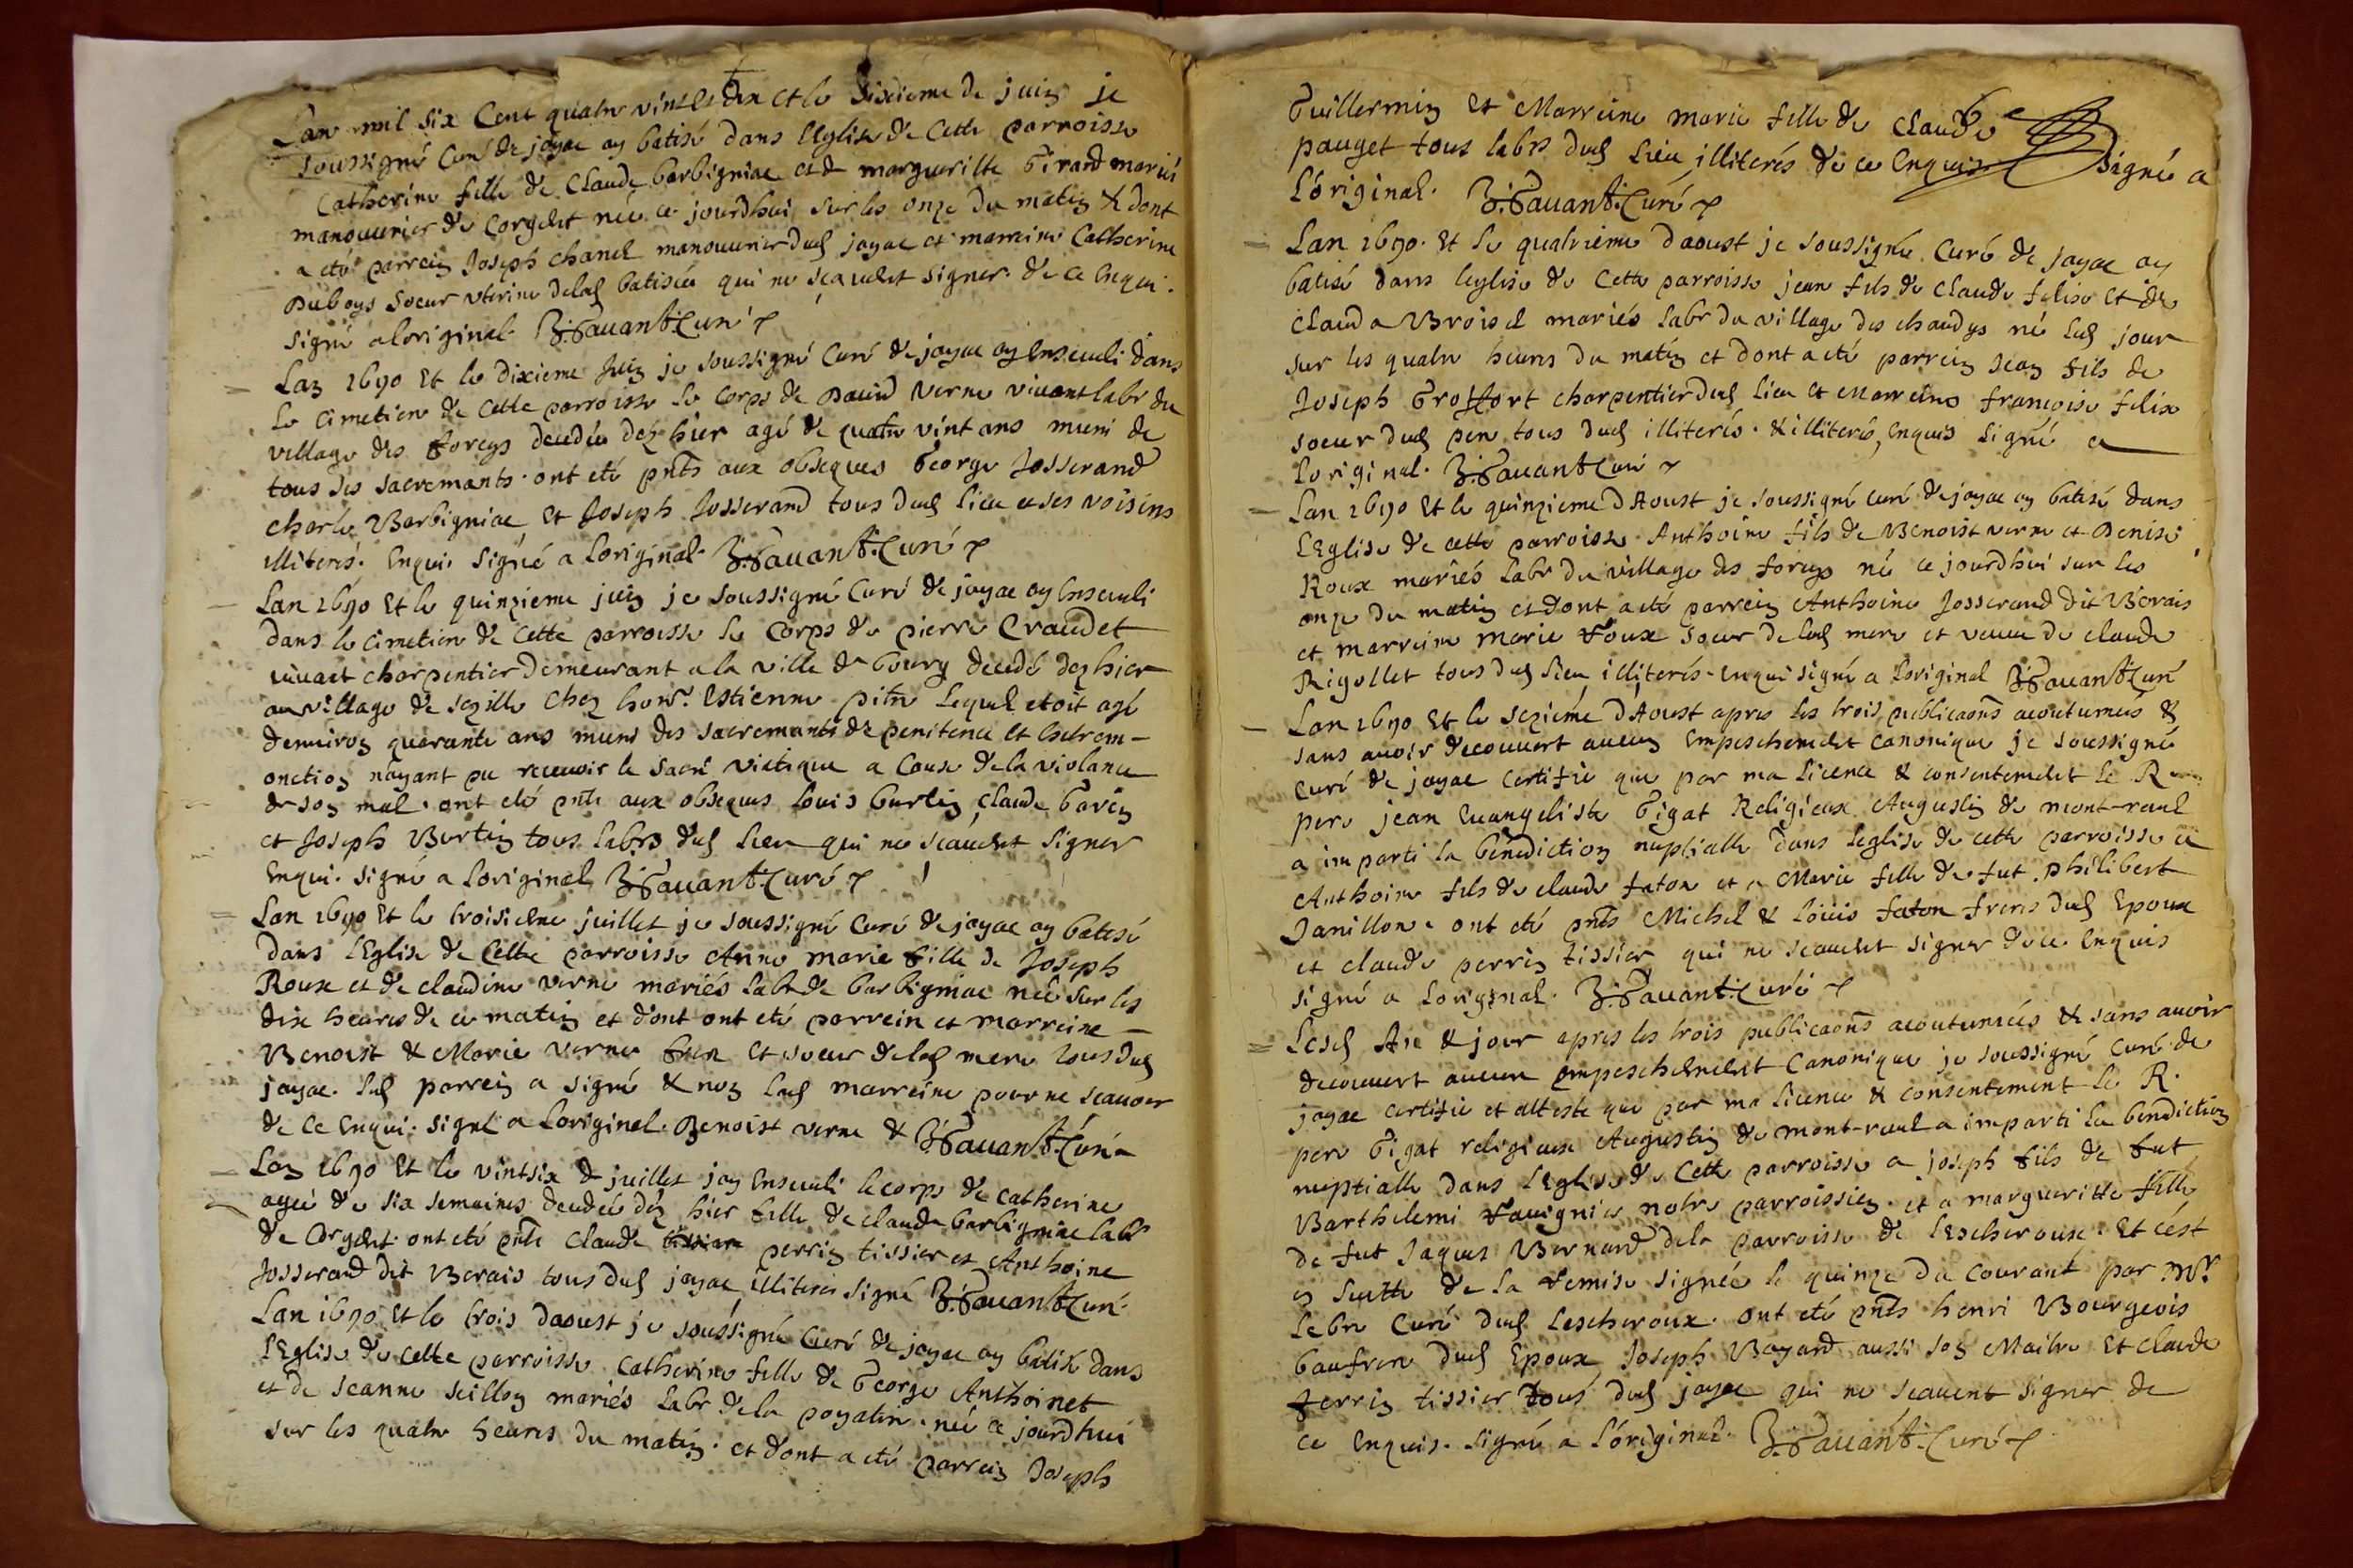 Lan mil six Cent quatre vints dix et le sixieme de juin je
soussigné Curé de jayac ay batisé dans l'Eglise de Cette parroisse
Catherine fille de Claude barbigniac et de margueritte Girard mariés
manouurier de Corgelet née ce jourdhui sur les onze du matin & dont
a eté parrein Joseph chanel manouurier dud jayac et marreine Catherine
Duboys soeur vterine de lad batisée qui ne sçauent signer de ce enqui.
signé a loriginal. Pauant Curé
Lan 1690 Et le dixieme Juin je soussigné Curé de jayac ay Enseueli dans
le Cimetiere de Cette parroisse le Corps de Dauid verne viuant labr du
village des foreys decedée dez hier agé de quatre vint ans muni de
tous ses sacremants. ont eté pnts aux obseques George Josserand
charle Barbigniac Et Joseph Josserand tous dud lieu et ses voisins
illiterés. Enqui. signé a loriginal. Pauant. Curé
Lan 1690 Et le quinzieme juin je soussigné Curé de jayac ay Enseueli
dans le Cimetiere de Cette parroisse le Corps de pierre Craudet
viuant charpentier demeurant a la ville de bourg decedé dez hier
au village de sezille Chez honr. Estienne pitre lequel etoit agé
denuiron quarante ans muni des sacremants de penitence et Extrem-
onction n'ayant pu receuoir le sacré viatique a Cause de la violance
de son mal. ont eté pnts aux obseques louis burtin, Claude Garin
et Joseph Burtin tous labrs dud lieu qui ne sçauent signer
Enqui. signé a loriginal Pauant. Curé
Lan 1690 Et le troisieme juillet je soussigné Curé de jayac ay batisé
dans l'Eglise de Cette parroisse Anne marie fille de Joseph
Roux et de claudine verne mariés labr de barbigniac née sur les
dix heures de ce matin et dont ont eté parrein et marreine
Benoist & Marie verne frere Et soeur de lad mere tous dud
jayac. led parrein a signé & non lad marreine pour ne scauoir
de ce Enqui. signé a loriginal. Benoist verne & Pauant. Curé
Lan 1690 Et le vintsix de juillet jay Enseueli le corps de catherine
agée de six semaines decedée déz hier fille de claude barbigniac labr
de Corgelet. ont eté pnts Claude tissier perrin tissier et Anthoine
Josserand dit Berais tous dud jayac illiterés signé Pauant Curé.
Lan 1690 Et le trois daoust je soussigné Curé de jayac ay batisé dans
l'Eglise de Cette parroisse Catherine fille de George Anthoinet
et de Jeanne seillon mariés labr de la poyatiere. née ce jourdhui
sur les quatre heures du matin. et dont a eté parrein Joseph
Guillermin Et Marreine marie fille de Claude
pauget tous labrs dud lieu illiterés de ce Enquis signé a
l'original. Pauant. Curé
Lan 1690. Et le quatrieme daoust je soussigné Curé de jayac ay
batisé dans leglise de Cette parroisse jean fils de Claude felise et de
Clauda Broisel mariés labr du village des chaudys né led jour
sur les quatre heures du matin et dont a eté parrein Jean fils de
Joseph Groffort charpentier dud lieu Et Marreine françoise felix
soeur dud pere tous dud illiterés. & illiterés, Enquis signé a
loriginal. Pauant Curé
Lan 1690 Et le quinzieme dAoust je soussigné Curé de jayac ay batisé dans
l'Eglise de cette parroisse Anthoine fils de Benoist verne et Denise
Roux mariés labr du village des foreys né ce jourdhui sur les
onze du matin et dont a eté parrein Anthoine Josserand dit Berais
et marreine marie roux soeur de lad mere et veuue de claude
Rigollet tous dud lieu illiterés. Enqui signé a loriginal Pauant Curé
Lan 1690 Et le sezieme dAoust apres les trois publicaons acoutumées &
sans auoir decouuert aucun Empeschement Canonique je soussigné
Curé de jayac Certifie que par ma licence & consentement le R
pere jean Euangeliste Gigat Religieux Augustin de mont-reuel
a imparti la benediction nuptialle dans leglise de cette parroisse a
Anthoine fils de claude faton et a Marie fille de fut philibert
Janillon. ont eté pnts Michel & louis faton freres dud Epoux
et claude perrin tissier qui ne scauent signer de ce Enquis
signé a loriginal. Pauant. Curé
Lesd An & jour apres les trois publicaons acoutumées & sans auoir
decouuert aucun empeschement Canonique je soussigné curé de
jayac certifie et atteste que par ma licence & consentement le R.
pere Gigat religieux Augustin de mont-reuel a imparti la benediction
nuptialle dans l'Eglise de Cette parroisse a joseph fils de fut
Barthelemi rauignier notre parroissien. et a margueritte fille
de fut Jaques Bernard de la parroisse de lEscheroux. Et c'est
en suitte de la remise signée le quinze du Courant par Mr
lebre Curé dud Lescheroux. ont eté pnts henri Bourgeois
baufrere dud Epoux, Joseph Bayard aussi son Maitre Et claude
perrin tissier tous dud jayac qui ne scauent signer de
ce Enquis. signé a l'original. Pauant. Curé